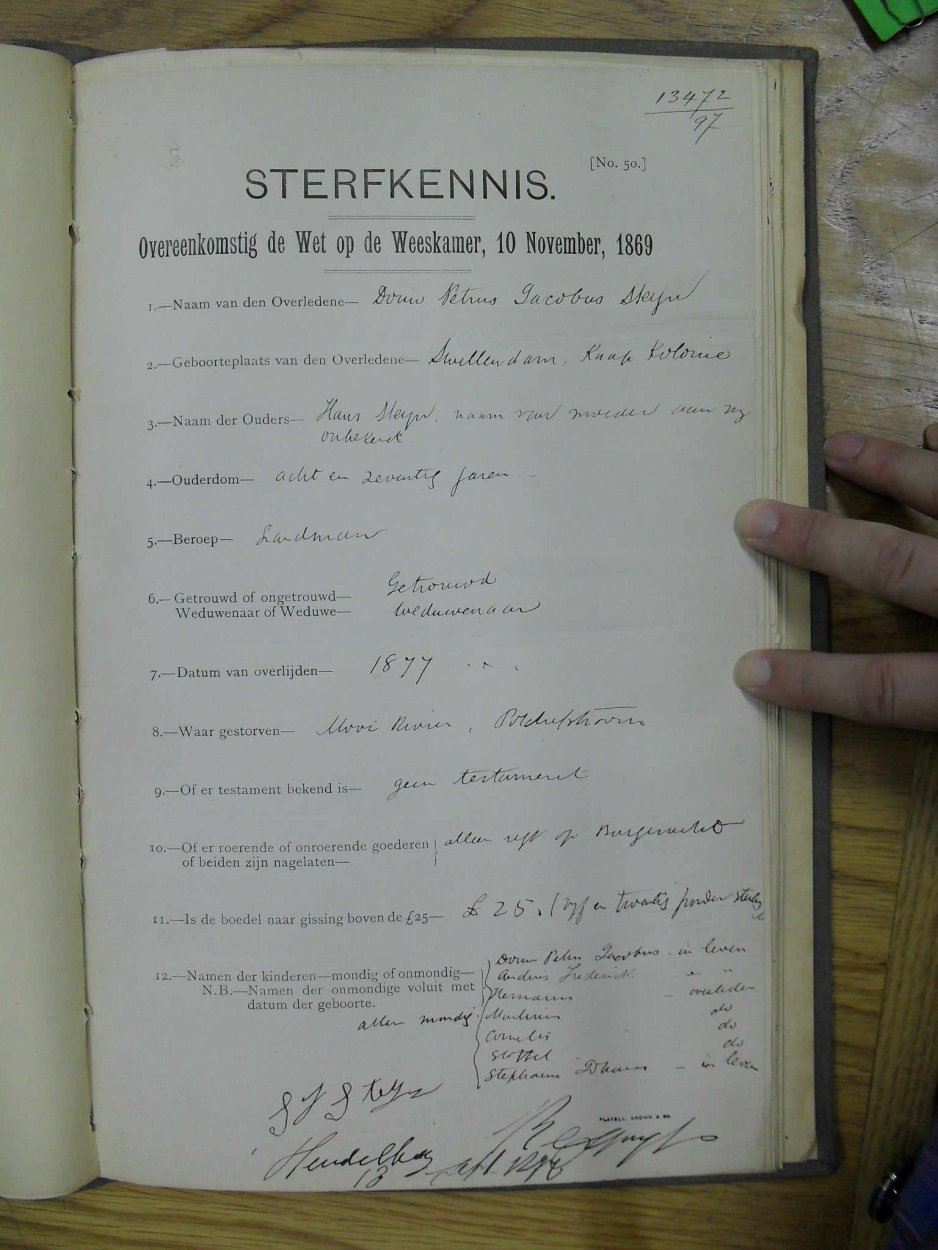 13472
97
[No. 50.]
STERFKENNIS.
Overeenkomstig de Wet op de Weeskamer, 10 November, 1869
1.—Naam van den Overledene— Douw Petrus Jacobus Steyn
2.—Geboorteplaats van den Overledene— Swellendam, Kaap Kolonie
3.—Naam der Ouders— Hans Steyn, naam van moeder aan my
onbekend.
4.—Ouderdom— acht en zeventig jaren
5.—Beroep— Landman
6.—Getrouwd of ongetrouwd— Getrouwd
Weduwenaar of Weduwe— Weduwenaar
7.—Datum van overlijden— 1877
8.—Waar gestorven— Mooi Rivier, Potchefstroom
9.—Of er testament bekend is— geen testament
10.—Of er roerende of onroerende goederen alleen regt op Burgerrecht
of beiden zijn nagelaten—
11.—Is de boedel naar gissing boven de £25— £25. (vyf en twintig ponden
12.—Namen der kinderen—mondig of onmondig— Douw Petrus Jacobus - in leven
N.B.—Namen der onmondige voluit met Frederick " "
datum der geboorte. Hermanus - overleden
allen mondig Marthinus do
Cornelis do
Stoffel do
Stephanus Johannes - in leven
Steyn
PLAYELL, BROWN & CO.
Heidelberg
13